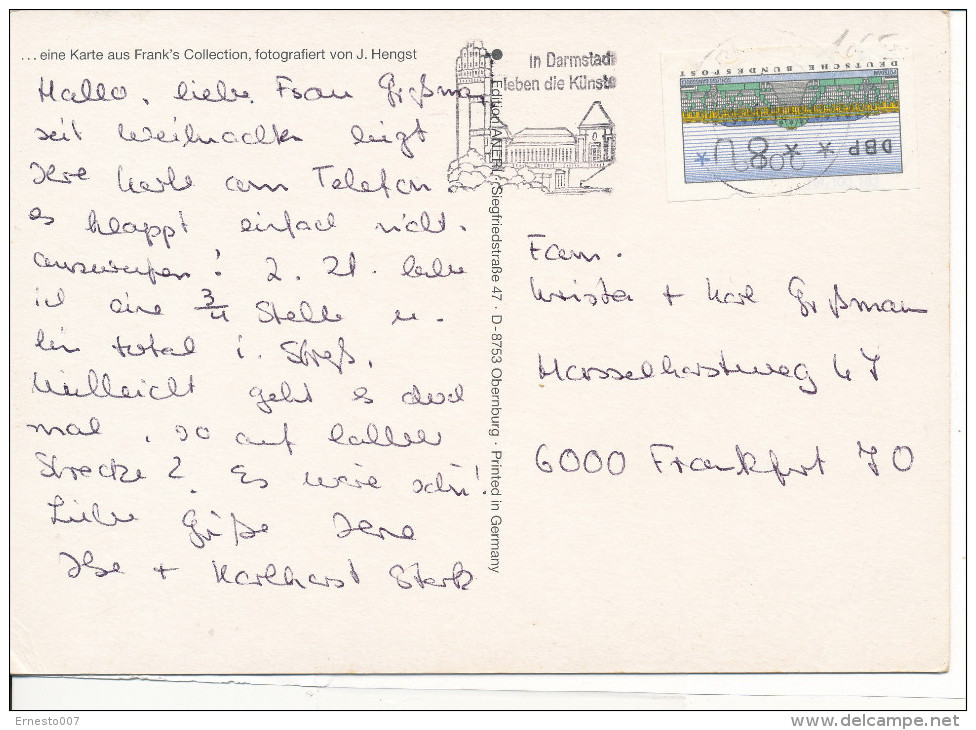 ...eine Karte aus Frank's Collection, fotografiert von J. Hengst
Hallo, liebe Frau Grßman,
seit Weihnachten liegt
Ihre Karte am Telefon
es klappt einfach nicht.
auszurufen! 2. 21. habe
ich eine 3/4 Stelle u.
bin total i. Streß.
Vielleicht geht es doch
mal, so auf halber
Strecke? Es wäre schön!
Liebe Grüße Ihre
Ilse + Karlhorst Sterk
Edition ANERI · Siegfriedstraße 47 · D-8753 Obernburg · Printed in Germany
in Darmstadt
leben die Künste
DEUTSCHE BUNDESPOST
DBP * * 80 *
Fam.
Krista + Karl Grßmann
Hasselhorstweg 47
6000 Frankfurt 70
Ernesto007
delcampe.net